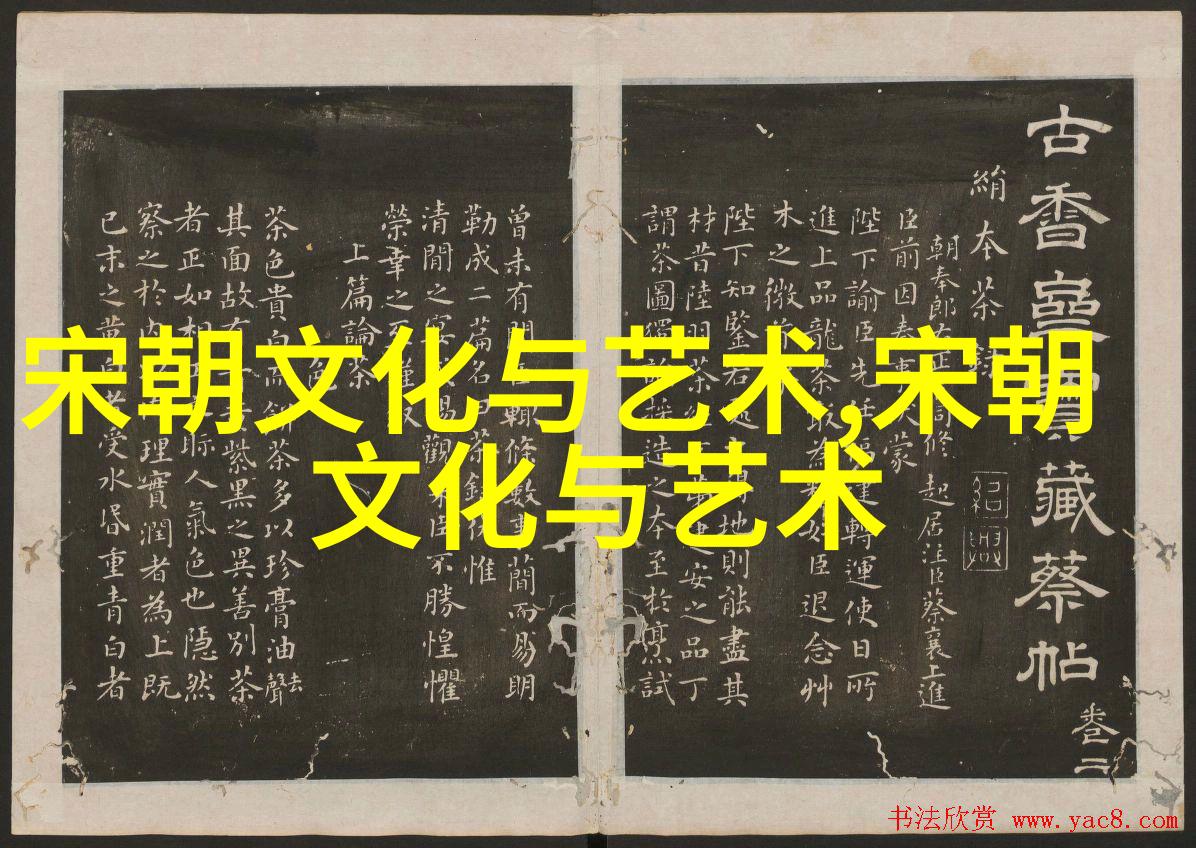 宋朝文化与艺术,宋朝
文化与艺术
古香齋寶藏蔡帖
卷二
絹本茶錄
朝奉郎右正 同修起居注臣蔡襄上進
臣前因奏事 蒙
陛下諭臣先任福建轉運使日所
進上品龍茶最為 好臣退念艸
木之微
陛下知鑒若處之得地則能盡其
材昔陸羽茶經 建安之品丁
謂茶圖獨論採造之本至於烹試
曾未有聞臣輒條數事簡而易明
勒成二篇名曰茶錄伏惟
清閒之宴或賜觀采臣不勝惶懼
榮幸之至謹敘
上篇論茶
色
茶色貴白而餅茶多以珍膏油去聲
其面故有 紫黑之異善別茶
者正如相 之眂人氣色也隱然
察之於內 理實潤者為上既
已末之黃白者受水昏重青白者
书法欣赏 www.yac8.com